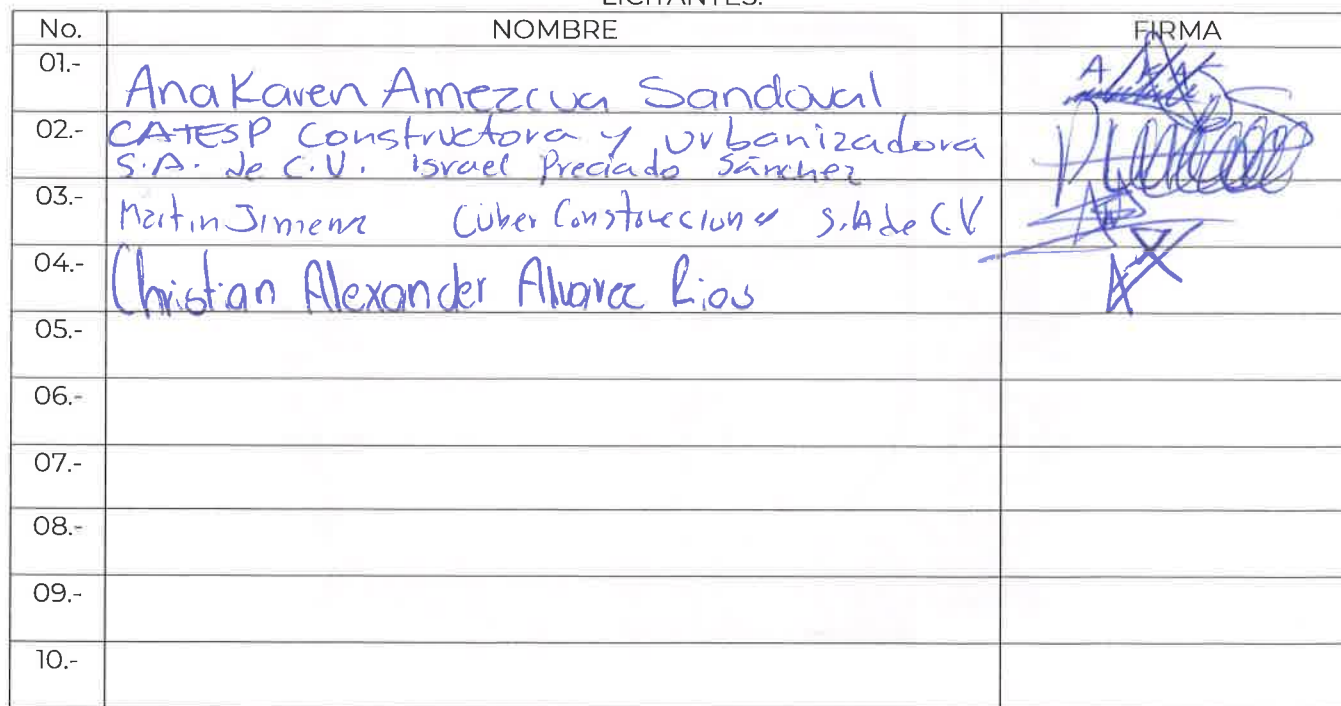 LICITANTES.
No. NOMBRE FIRMA
01.- Ana Karen Amezcua Sandoval
02.- CATESP Constructora y Urbanizadora
S.A. de C.V. Israel Preciado Sánchez
03.- Martin Jimenz Cuber Construcciones S.A de C.V
04.- Christian Alexander Alvarez Rios
05.-
06.-
07.-
08.-
09.-
10.-